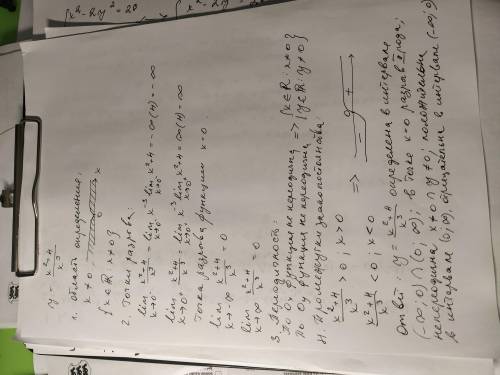 y = (x²+4)/x³
1. Область определения:
x ≠ 0
{x ∈ ℝ : x ≠ 0}
2. Точки разрыва:
lim x→0⁻ (x²+4)/x³ = lim x→0⁻ x⁻³ · lim x→0⁻ x²+4 = -∞(4) = -∞
lim x→0⁺ (x²+4)/x³ = lim x→0⁺ x⁻³ · lim x→0⁺ x²+4 = ∞(4) = ∞
Точка разрыва функции x=0
lim x→-∞ (x²+4)/x³ = 0
lim x→∞ (x²+4)/x³ = 0
3. Периодичность:
По Ox функция не периодична => {x∈ℝ : x≠0}
По Oy функция не периодична {y∈ℝ : y≠0}
4. Промежутки знакопостоянства:
(x²+4)/x³ > 0 ; x > 0
(x²+4)/x³ < 0 ; x < 0 => - 0 +
Ответ: y = (x²+4)/x³ определена в интервале
(-∞; 0) ∩ (0; ∞); в точке x=0 разрыв рода;
непериодична, x≠0 ∩ y≠0; положительна
в интервале (0; ∞), отрицательна в интервале (-∞; 0)